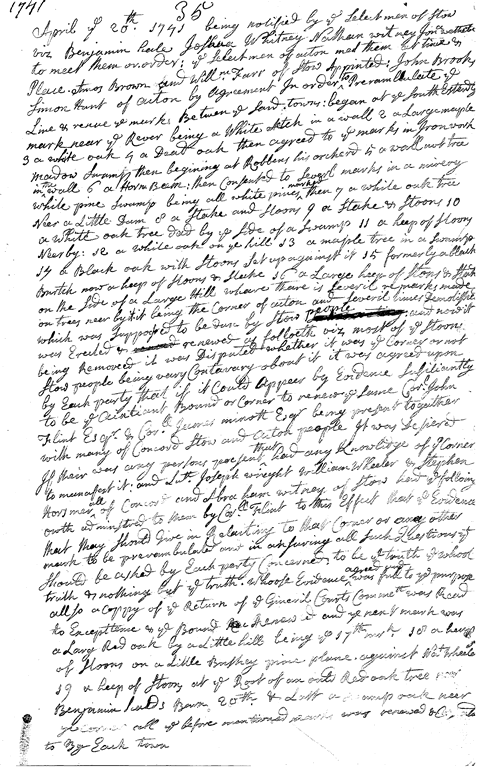 1741
35
April ye 20th. 1741 being notified by ye Select men of Stow
viz Benjamin Joshua Whitney Nathan witney Jon
to meet them or order; ye Select men of acton med them at time &
Place Amos Brown and Willm Farr of Stow Appinted; John Brooks
Simon Hunt of acton by Agreement In order to Prerambulate ye
Line & renue ye marks Between ye Said towns: began at ye South Esterly
mark near ye Rever being a White in a wall 2 a Large maple
3 a white oak 4 a Dead oak then agreed to ye marks in Iron work
madow Swamp then begining at Robbens his orcherd 5 a wall nut tree
in the wall 6 a Horn Beam: then Consented to Severl marks in a mirery
while pine Swamp being all white pines marked then 7 a while oak tree
Near a Little Dam 8 a Stake and Stoons 9 a Stake & Stoons 10
a White oak tree Dad by ye Side of a Swamp 11 a heep of Stoons
Nearby: 12 a while oak on ye hill 13 a maple tree in a Swamp
14 a Black oak with Stoons Set up against it 15 formerly a black
Burtch now a heep of Stoons & Stake 16 a Large heep of Stoons & Stake
on the Side of a Large Hill whare there is Severil remarks made
on trees near by it being the Corner of acton and Severil times
which was Suppored to be dun by Stow people and now it
was Erected & renewed as folloeth viz most of ye Stoons
being Removed it was Disputed whether it was ye Corner or not
Stow people being vary Contarary about it it was agreed upon
by Each party that if it Could Appear by Evidence Suffiliantly
to be ye Bound or Corner to renew ye Same Corl. John
Flint Esqr. & Corl. James minott Esqr being presant togather
with many of Concord Stow and Acton people it was Desiered
If thair was any persons presant that had any Knowlidge of ye Corner
to manafest it: and Lt. Joseph wright William Wheeler & Stephen
Horsmer all of Concord and Abraham witney of Stow had ye following
oath administred to them by Corl. Flint to this Effect that ye Evidence
that they Should Give in Relaiting to that Corner or any other
mark to be prerambulated and in answring all Such Questions as
Should be asked by Each party Concerned to be ye truth ye whool
truth & nothing but ye truth: whoose Evidence agreed and was full to ye purpose
allso a coppy of ye Return of ye Gineril Courts Committ was Read
to Exceptence & ye Bound Renewed and ye next mark was
a Larg Red oak by a Little hill being ye 17th mrk. 18 a heep
of Stoons on a Little Bushey pine plane against Wheelers
19 a heep of Stoons at ye Root of an old Red oak tree
Benjamin Barn 20th. & Last a Swamp oak near
ye Corner all ye before mentioned marks was renewed &
to By Each town